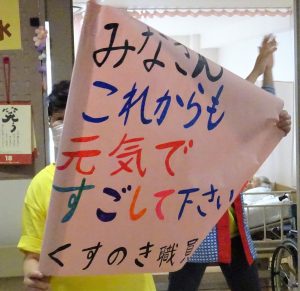 みなさん
これからも
元気で
すごして下さい
くすのき職員
笑う
18